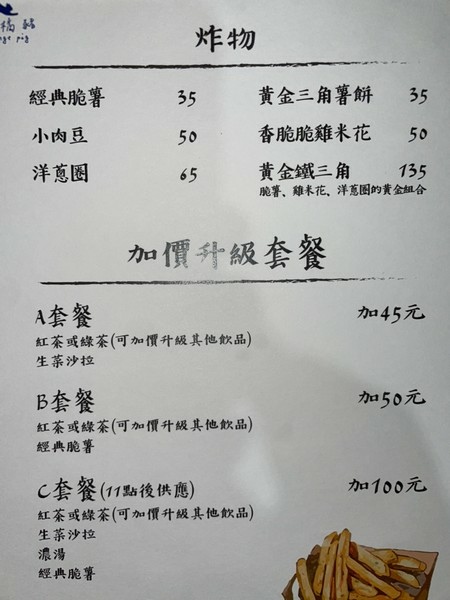 橘豬
炸物
經典脆薯 35
黃金三角薯餅 35
小肉豆 50
香脆脆雞米花 50
洋蔥圈 65
黃金鐵三角 135
脆薯、雞米花、洋蔥圈的黃金組合
加價升級套餐
A套餐 加45元
紅茶或綠茶(可加價升級其他飲品)
生菜沙拉
B套餐 加50元
紅茶或綠茶(可加價升級其他飲品)
經典脆薯
C套餐(11點後供應) 加100元
紅茶或綠茶(可加價升級其他飲品)
生菜沙拉
濃湯
經典脆薯